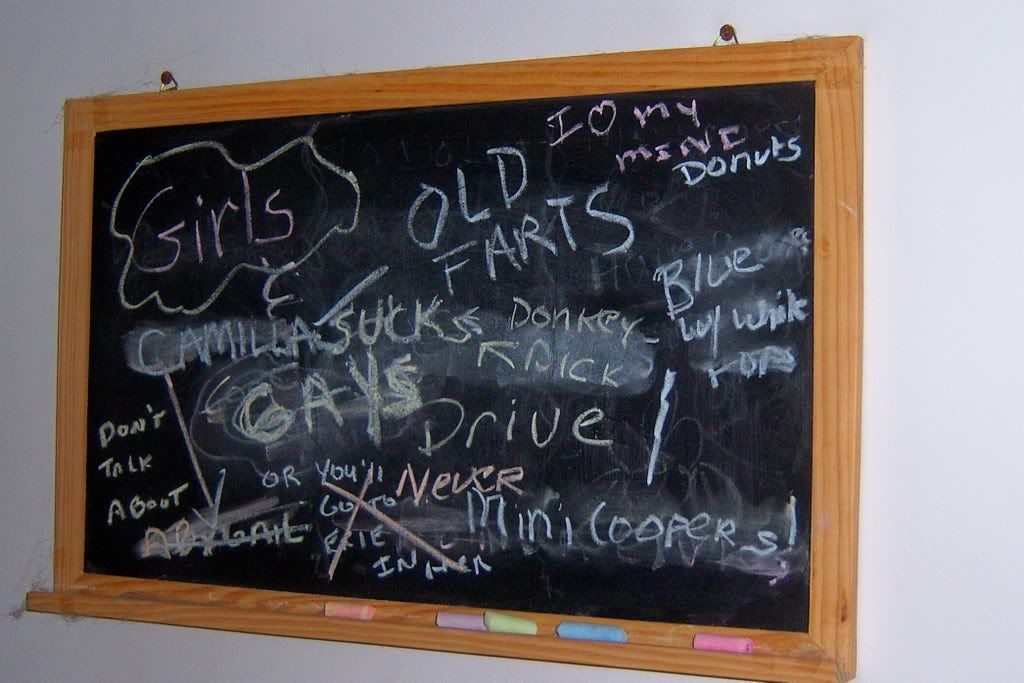 I ♡ my
mini
Donuts
Girls
&
OLD
FARTS
Blue
w/ white
TOP
CAMILLA SUCKS Donkey
DICK
GAYS
Drive
DON'T
TALK
ABOUT
ABYGAIL
OR YOU'll
GO TO
NEVER
Mini Coopers!
IN HER